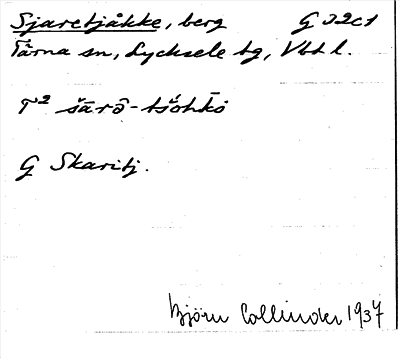 Sjaretjåkke, berg G 32c1
Tärna sn, Lycksele lg, Vbtl.
T² šārō-tšohkō
G Skaritj.
Björn Collinder 1937